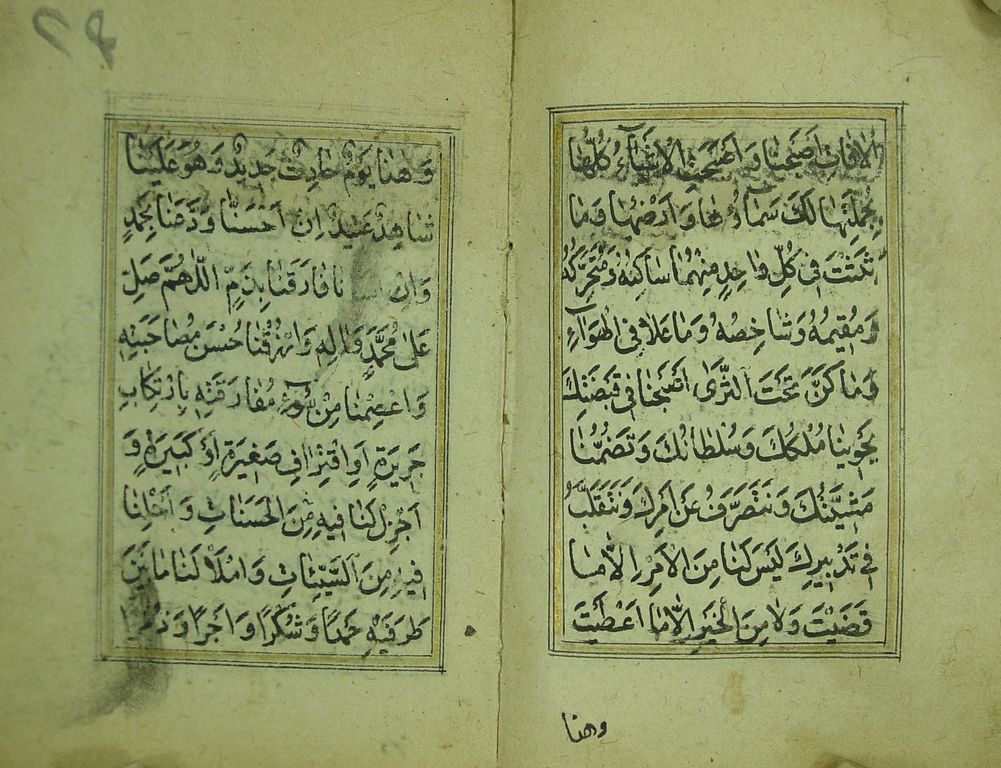 الآفات أَصْبَحْنَا وَأَصْبَحَتِ الْأَشْيَاءُ كُلُّهَا
بِجُمْلَتِهَا لَكَ سَمَاؤُهَا وَأَرْضُهَا وَمَا
بَثَثْتَ فِي كُلِّ وَاحِدٍ مِنْهُمَا سَاكِنُهُ وَمُتَحَرِّكُهُ
وَمُقِيمُهُ وَشَاخِصُهُ وَمَا عَلَا فِي الْهَوَاءِ
وَمَا كَنَّ تَحْتَ الثَّرَى أَصْبَحْنَا فِي قَبْضَتِكَ
يَحْوِينَا مُلْكُكَ وَسُلْطَانُكَ وَتَضُمُّنَا
مَشِيَّتُكَ وَنَتَصَرَّفُ عَنْ أَمْرِكَ وَنَتَقَلَّبُ
فِي تَدْبِيرِكَ لَيْسَ لَنَا مِنَ الْأَمْرِ إِلَّا مَا
قَضَيْتَ وَلَا مِنَ الْخَيْرِ إِلَّا مَا أَعْطَيْتَ
وهذا
وَهَذَا يَوْمٌ حَادِثٌ جَدِيدٌ وَهُوَ عَلَيْنَا
شَاهِدٌ عَتِيدٌ إِنْ أَحْسَنَّا وَدَّعَنَا بِحَمْدٍ
وَإِنْ نَا فَارَقَنَا بِذَمٍّ اللَّهُمَّ صَلِّ
عَلَى مُحَمَّدٍ وَآلِهِ وَارْزُقْنَا حُسْنَ مُصَاحَبَتِهِ
وَاعْصِمْنَا مِنْ سُوءِ مُفَارَقَتِهِ بِارْتِكَابِ
جَرِيرَةٍ أَوِ اقْتِرَافِ صَغِيرَةٍ أَوْ كَبِيرَةٍ وَ
أَجْزِلْ لَنَا فِيهِ مِنَ الْحَسَنَاتِ وَأَخْلِنَا
فِيهِ مِنَ السَّيِّئَاتِ وَامْلَأْ لَنَا مَا بَيْنَ
طَرَفَيْهِ حَمْدًا وَشُكْرًا وَأَجْرًا وَذُخْرًا